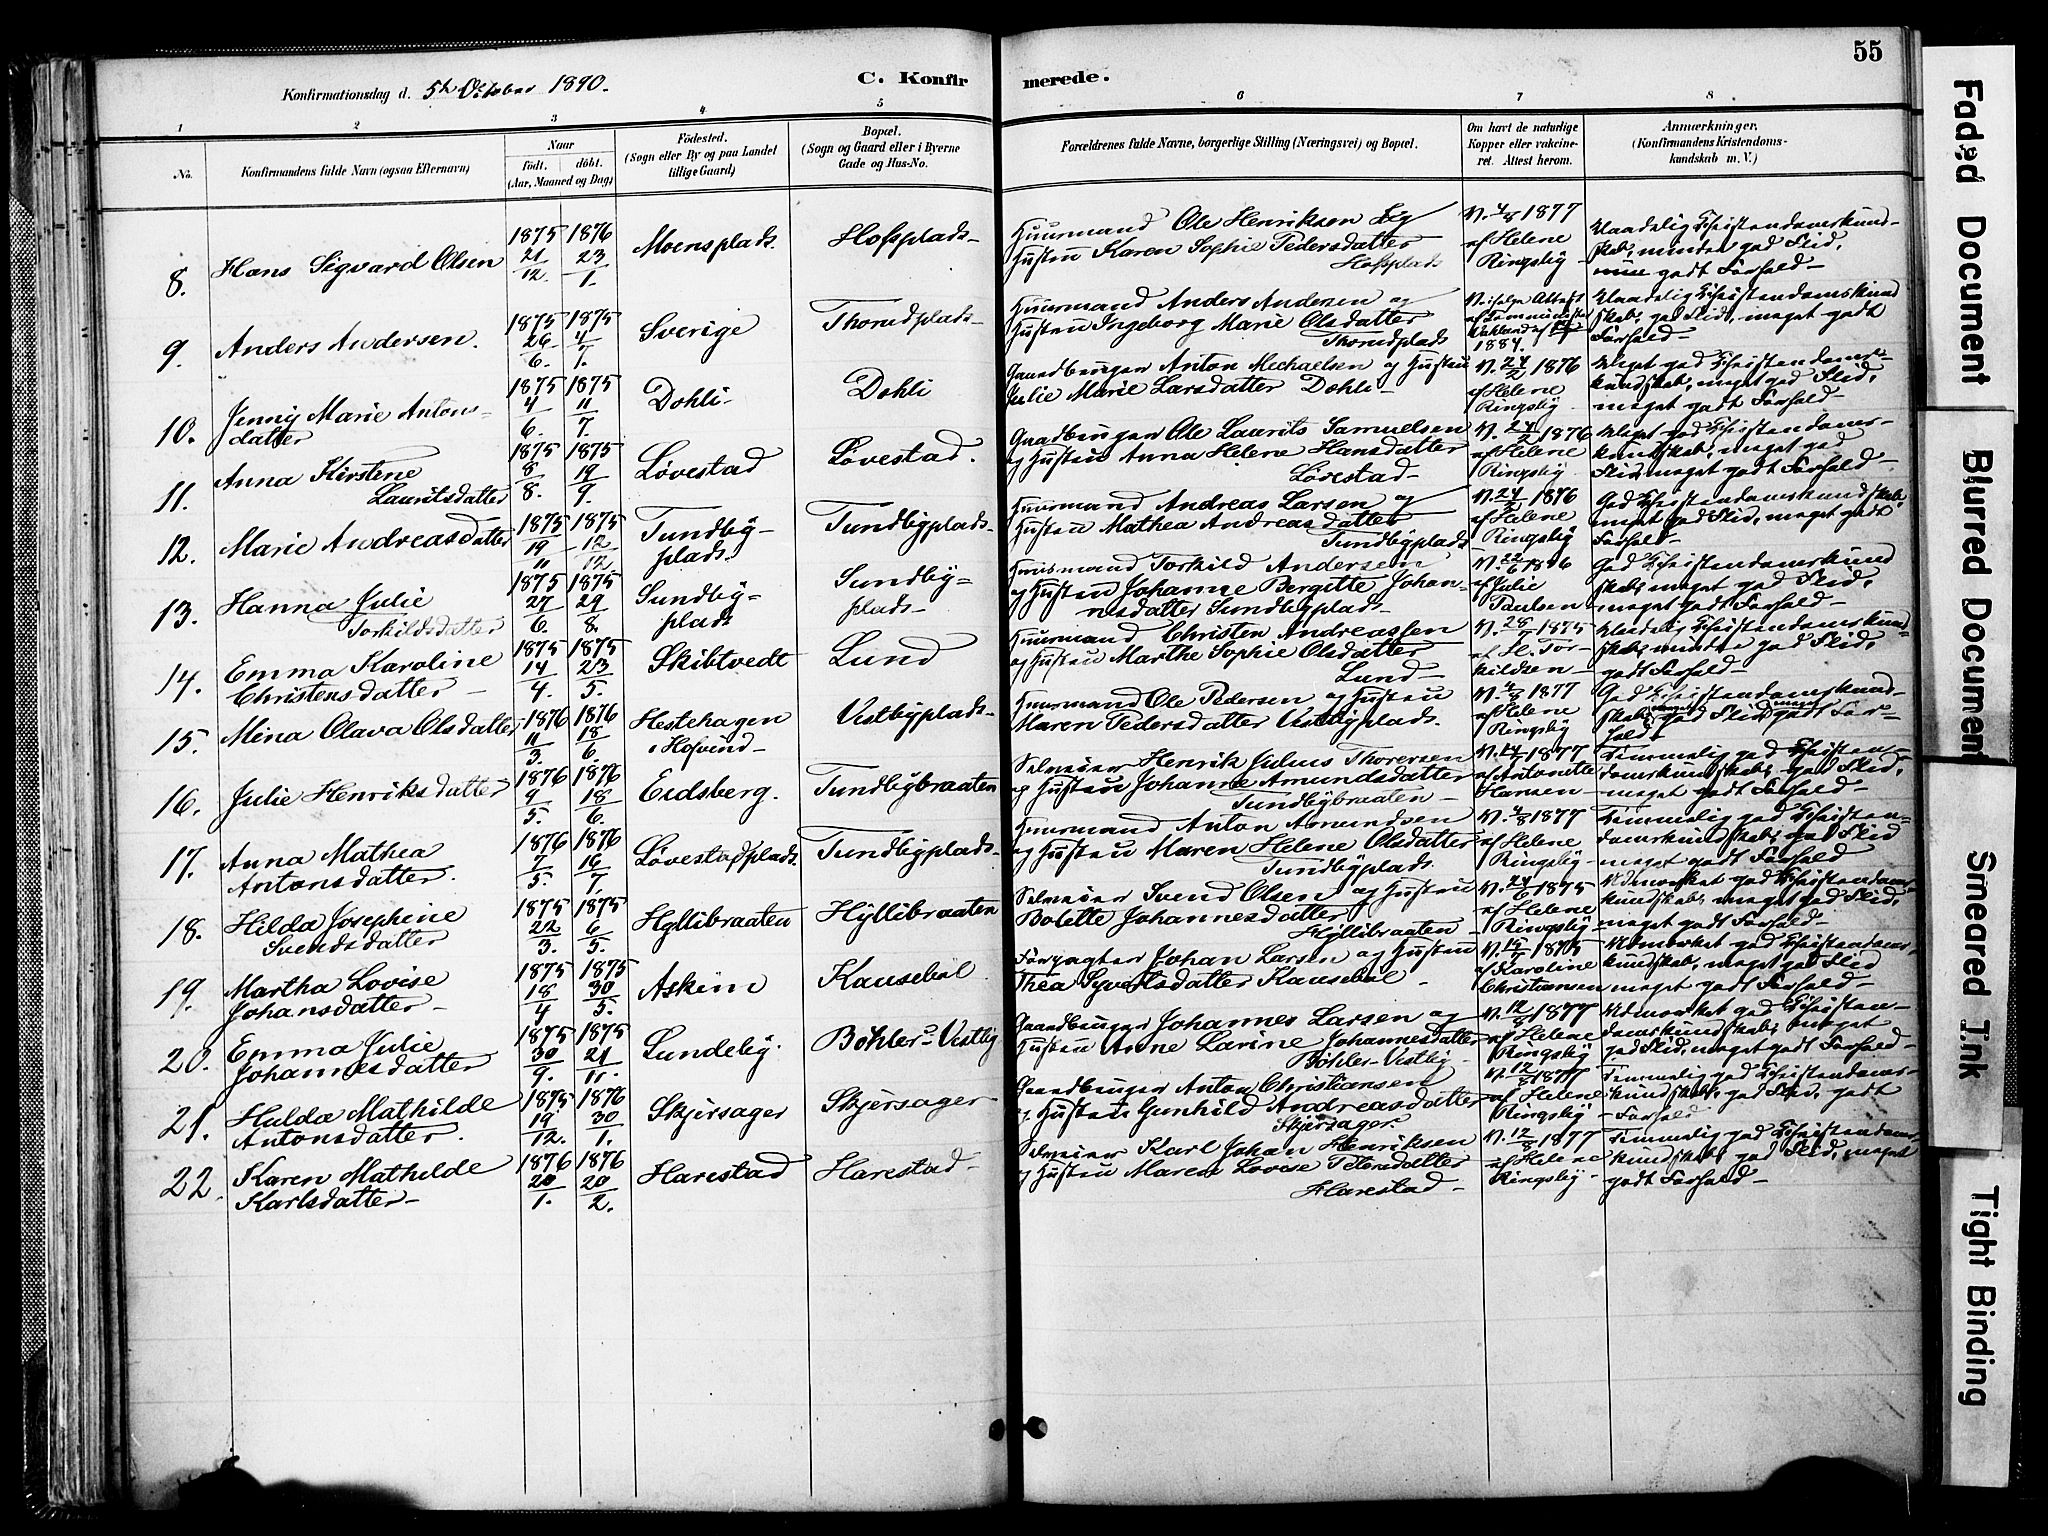 55
Konfirmationsdag d. 5te October 1890.
C. Konfirmerede.
1 2 3 4 5 6 7 8
No.
Konfirmandens fulde Navn (ogsaa Efternavn)
Naar
født. døbt.
(Aar, Maaned og Dag)
Födested.
(Sogn eller By og paa Landet
tillige Gaard)
Bopæl.
(Sogn og Gaard eller i Byerne
Gade og Hus-No.
Forældrenes fulde Navne, borgerlige Stilling (Næringsvei) og Bopæl.
Om havt de naturlige
Kopper eller vakcine-
ret. Attest herom.
Anmærkninger.
(Konfirmandens Kristendoms-
kundskab m. V.)
8. Hans Sigvard Olsen 1875 21/12. 1876 23/1. Moensplads. Hofsplads-
Huusmand Ole Henriksen og
Hustru Karen Sophie Pedersdatter
Hofsplads
V. 4/8 1877
af Helene
Ringsby-
Maadelig Christendomskund-
skab, mindre god Flid,
godt Forhold-
9. Anders Andersen. 1875 26/6. 1875 4/7. Sverige Thorudplads-
Huusmand Anders Andersen og
Hustru Ingeborg Marie Olsdatter
Thorudplads
1884.
Maadelig Christendomskund
skab, god Flid, meget godt
Forhold-
10. Jenny Marie Antons-
datter 1875 4/6. 1875 11/7. Dohli- Dohli
Gaardbruger Anton Mechaelsen og Hustru
Julie Marie Larsdatter Dohli-
V. 24/2 1876
af Helene
Ringsby-
Meget god Christendoms-
kundskab, meget god Flid,
meget godt Forhold-
11. Anna Kirstene
Lauritsdatter 1875 8/8. 1875 19/9. Løvestad Løvestad.
Gaardbruger Ole Laurits Samuelsen
og Hustru Anna Helene Hansdatter
Løvestad-
V. 24/2 1876
af Helene
Ringsby-
Meget god Christendoms-
kundskab, meget god
Flid, meget godt Forhold-
12. Marie Andreasdatter 1875 19/11 1875 12/12 Tundby-
plads. Tundbyplads-
Huusmand Andreas Larsen og
Hustru Mathea Andreasdatter
Tundbyplads
V. 24/2 1876
af Helene
Ringsby
God Christendomskundskab,
meget god Flid, meget godt
Forhold-
13. Hanna Julie
Torkildsdatter 1875 27/6. 1875 29/8. Sundby-
plads Sundby-
plads-
Huusmand Torkild Andersen
og Hustru Johanne Bergitte Johan-
nesdatter Sundbyplads-
af Julie
Paulsen-
God Christendomskund
skab, meget god Flid,
meget godt Forhold-
14. Emma Karoline
Christensdatter- 1875 14/4. 1875 23/5. Skibtvedt Lund
Huusmand Christen Andreassen
og Hustru Marthe Sophie Olsdatter
Lund-
V. 28/7 1875
af H. Tor-
kildsen-
Maadelig Christendomskund-
skab, mindre god Flid,
godt Forhold-
15. Mina Olava Olsdatter- 1876 11/3. 1876 18/6. Hestehagen
i Hofvind- Vestbyplads-
Huusmand Ole Pedersen og Hustru
Maren Pedersdatter Vestbyplads.
V. 4/8 1877
af Helene
Ringsby
God Christendomskund-
skab, meget god Flid, meget godt For-
hold.
16. Julie Henriksdatter 1876 9/5. 1876 18/6. Eidsberg. Tundbybraaten
Selveier Henrik Julius Thoresen
og Hustru Johanne Amundsdatter
Tundbybraaten-
af Antonette
Hansen-
Temmelig god Christen-
domskundskab, god Flid,
meget godt Forhold-
17. Anna Mathea
Antonsdatter. 1876 7/5. 1876 16/7. Løvestadplads. Tundbyplads-
Huusmand Anton Amundsen
og Hustru Maren Helene Olsdatter
Tundbyplads
V. 4/8 1877
af Helene
Ringsby-
Temmelig god Christen-
domskundskab, god Flid
meget godt Forhold
18. Hilda Josephine
Svendsdatter 1875 22/3. 1875 6/5. Hyllibraaten Hyllibraaten
Selveier Svend Olsen og Hustru
Bolette Johannesdatter
Hyllibraaten-
V. 24/6 1875
af Helene
Ringsby-
Udmerket god Christendoms-
kundskab, meget god Flid,
meget godt Forhold-
19. Martha Lovise
Johansdatter- 1875 18/4 1875 30/5. Askim Kausebøl
Forpagter Johan Larsen og Hustru
Thea Syvertsdatter Kausebøl-
af Karoline
Christiansen
Udmerket god Christendoms-
kundskab, meget god Flid
meget godt Forhold-
20. Emma Julie
Johannesdatter 1875 30/9. 1875 21/11. Lundeby. Bøhler-Vestby
Gaardbruger Johannes Larsen og
Hustru Anne Larine Johannesdatter
Bøhler-Vestby-
V. 12/8 1877
af Helene
Ringsby
Udmerket god Christen-
domskundskab, meget
god Flid, meget godt Forhold-
21. Hulda Mathilde
Antonsdatter. 1875 19/12. 1876 30/1. Skjersager Skjersager
Gaardbruger Anton Christiansen
og Hustru Gunhild Andreasdatter
Skjersager.
V. 12/8 1877
af Helene
Ringsby-
Temmelig god Christendoms-
kundskab, god Flid, godt
Forhold
22. Karen Mathilde
Karlsdatter- 1876 20/1. 1876 20/2. Harestad Harestad-
Selveier Karl Johan Henriksen
og Hustru Maren Lovise Petersdatter
Harestad-
V. 12/8 1877
af Helene
Ringsby-
Temmelig god Christendoms-
kundskab, god Flid, meget
godt Forhold-
Faded Document
Blurred Document
Smeared Ink
Tight Binding